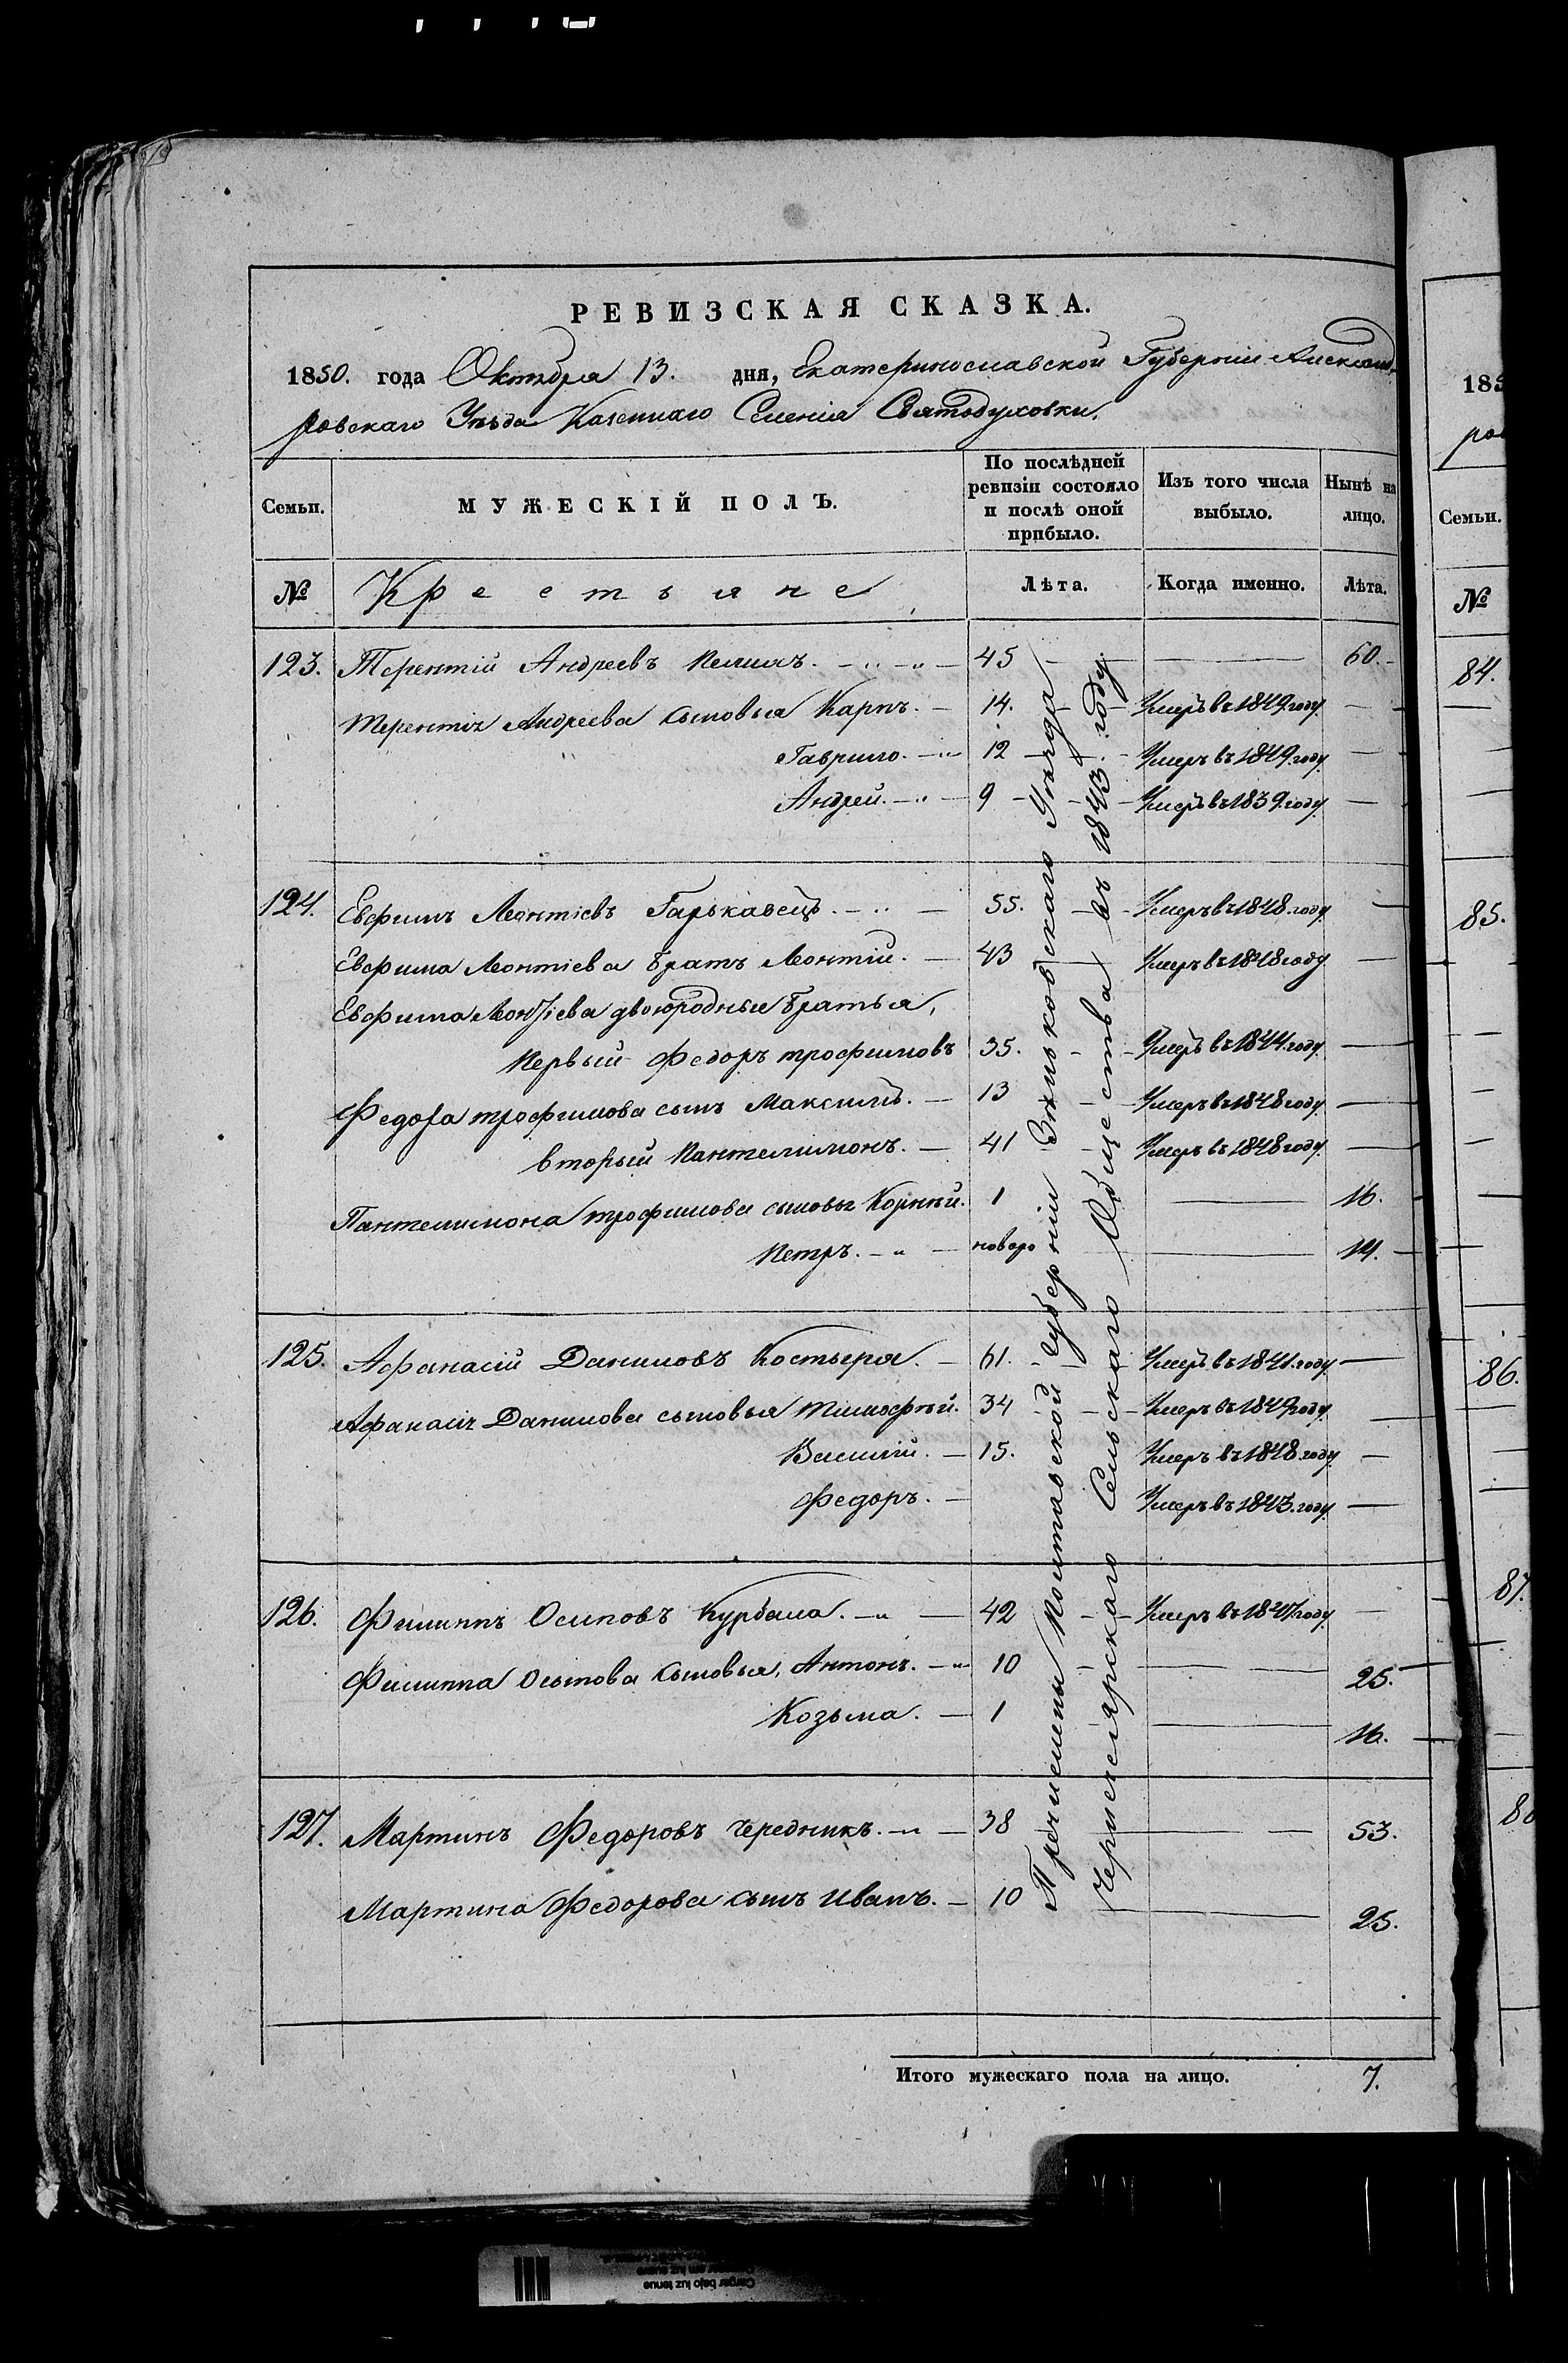 РЕВИЗСКАЯ СКАЗКА.
1850. года Октября 13. дня, Екатеринославской Губерніи Александ-
ровскаго Уѣзда Казеннаго Селенія Святодуховки.
Семьи. МУЖЕСКІЙ ПОЛЪ. По послѣдней ревизіи состояло и послѣ оной прибыло. Изъ того числа выбыло. Нынѣ на лицо.
№ Крестьяне Лѣта. Когда именно. Лѣта.
123. Терентій Андреевъ 45 60.
Терентія Андреева сыновья Карпъ. 14. Умеръ въ 1849. году
Гаврило. 12 Умеръ въ 1849. году
Андрей. 9 Умеръ въ 1839. году
124. Евфимъ Леонтіевъ Гарькавецъ. 55. Умеръ въ 1848. году
Евфима Леонтіева братъ Леонтій. 43 Умеръ въ 1848 году
Евфима Леонтіева двоюродные братья,
первый Федоръ Трофимовъ 35. Умеръ въ 1844. году
Федора Трофимова сынъ Максимъ. 13 Умеръ въ 1848 году
вторый Пантелимонъ. 41 Умеръ въ 1848 году
Пантелимона Трофимова сыновья Корнѣй. 1 16.
Петръ. новоро 14.
125. Афанасій Даниловъ Костыря. 61. Умеръ въ 1841. году
Афанасія Данилова сыновья Тимофѣй. 34 Умеръ въ 1849 году
Василій. 15. Умеръ въ 1848 году
Федоръ. Умеръ въ 1843. году
126. Филиппъ Осиповъ Курбала. 42 Умеръ въ 1847 году
Филиппа Осипова сыновья, Антонъ. 10 25.
Козьма. 1 16.
127. Мартинъ Федоровъ Чередникъ. 38 53.
Мартина Федорова сынъ Иванъ. 10 25.
Причислены Полтавской Губерніи Зѣньковскаго Уѣзда
Сельскаго Общества въ 1843. году
Итого мужескаго пола на лицо. 7.
185
Семьи.
№
84.
85.
86.
87.